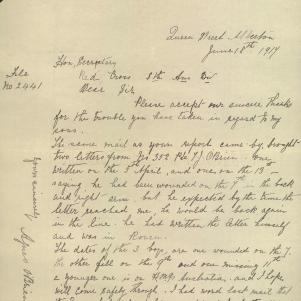 Queen Street Alberton
June 18th 1917
File
No 2441
Hon, Secretary
Red Cross 8th Aus Div
Dear Sir
Please accept our sincere thanks
for the trouble you have taken in regard to my
sons.
The same mail as your report came by, brought
two letters from No 352 Pte T.J OBrien. One
written on the 3rd April, and one on the 13th -
saying he had been wounded on the 7th in the back
and right arm. but he expected by the time the
letter reached me, he would be back again
in the line. he had written the letter himself
and was in Rouen.
The dates of the 3 boys are one wounded on the 7.
the other fell on the 9th and one missing 11th
a younger one is on Australia, and I hope
will come safely through. I had word last mail that
Yours sincerely
OBrien